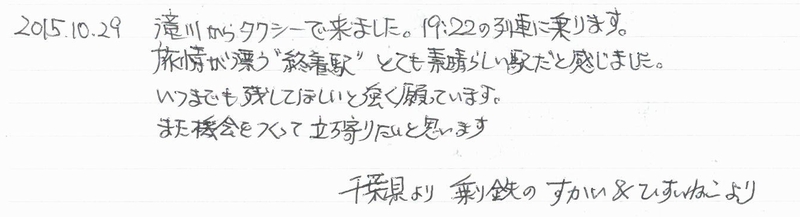 2015.10.29 滝川からタクシーで来ました。19:22の列車に乗ります。
旅情が漂う"終着駅"とても素晴らしい駅だと感じました。
いつまでも残してほしいと強く願っています。
また機会をつくって立ち寄りたいと思います
千葉県より 乗り鉄の すかい&ひすいねこより